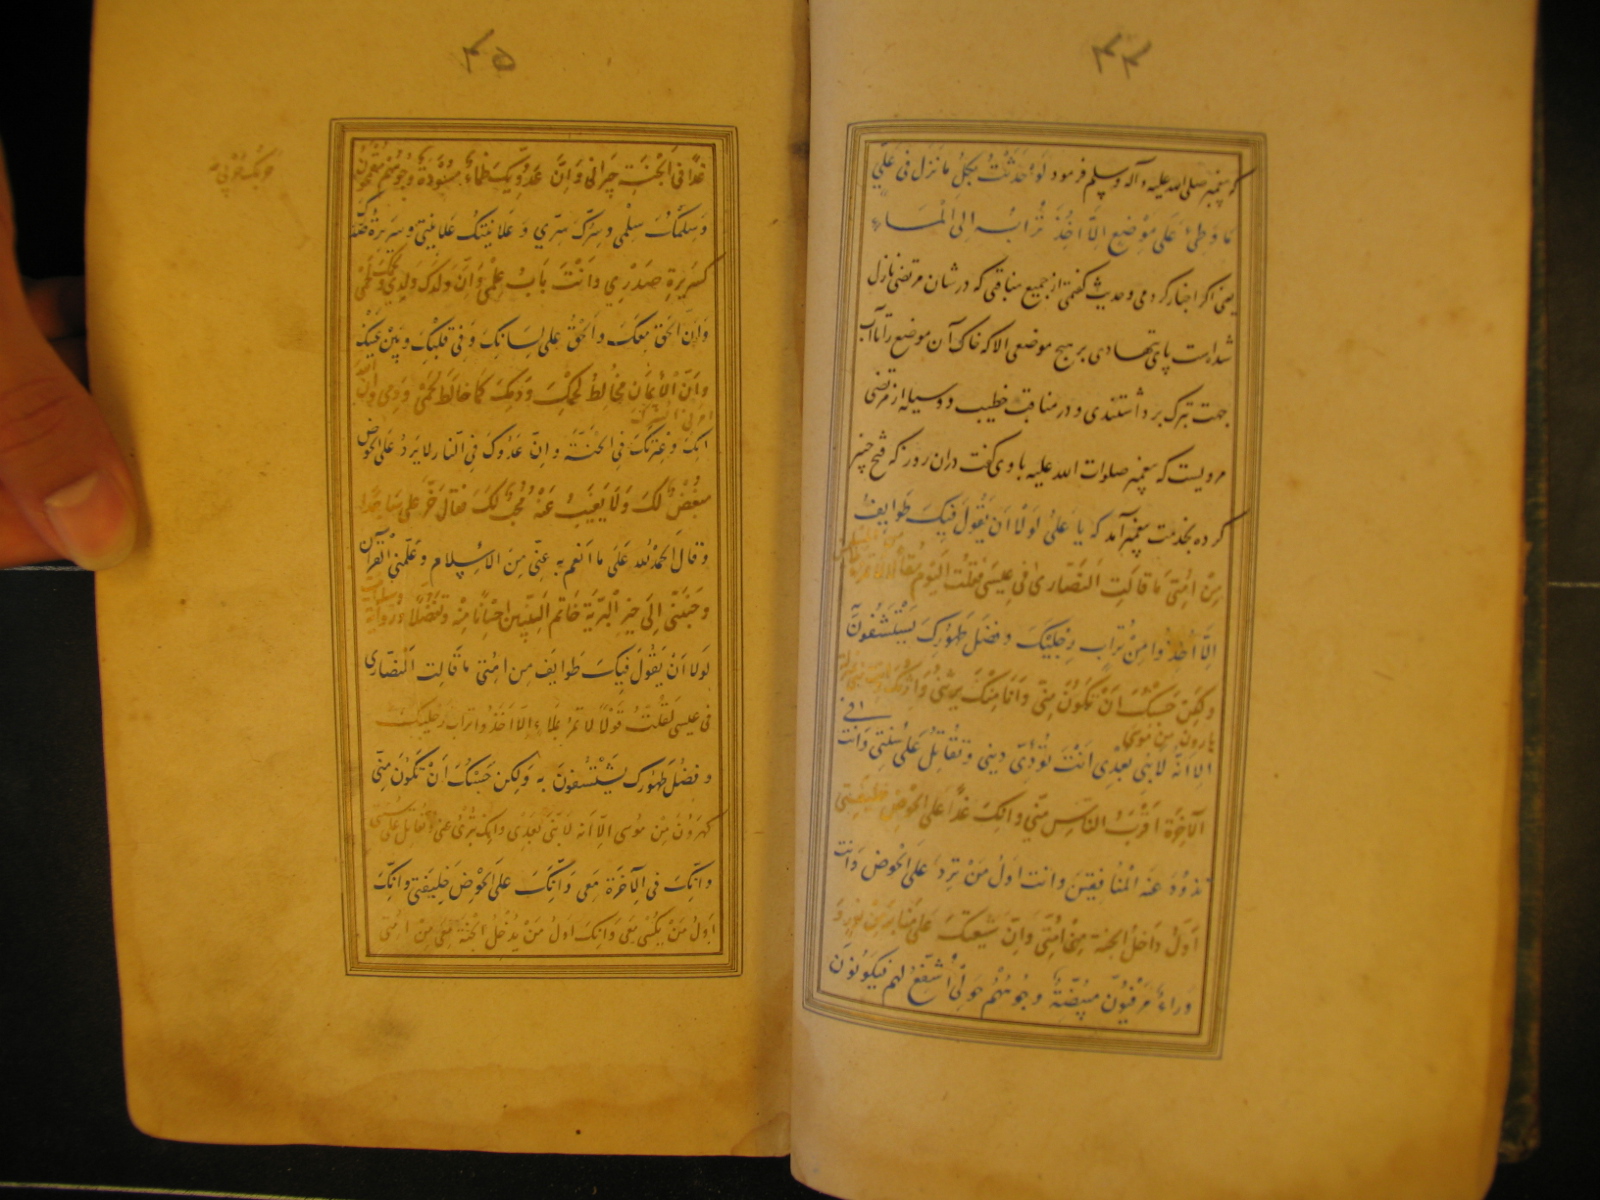 ۴۴
که پیغمبر صلی الله علیه و آله و سلم فرمود لَوْ حَدَّثْتُ بِكُلِّ ما نَزَلَ فی عَلِیٍّ
ما وَطِئَ عَلی مَوْضِعٍ اِلّا اُخِذَ تُرابُهُ اِلَی الْماءِ
یعنی اگر اخبار کردمی و حدیث گفتمی از جمیع مناقبی که در شان مرتضی نازل
شده است پای ننهادی بر هیچ موضعی الا که خاک آن موضع را تا آب
جهت تبرک برداشتندی و در مناقب خطیب و وسیله از مرتضی
مرویست که پیغمبر صلوات الله علیه با وی گفت در آن روز که فتح خیبر
کرده بخدمت پیغمبر آمد که یا عَلیُّ لَوْلا اَنْ یَقُولَ فیكَ طَوایِفُ
مِنْ اُمَّتی ما قالَتِ النَّصاری فی عیسی لَقُلْتُ الْیَوْمَ
اِلّا اَخَذُوا مِنْ تُرابِ رِجْلَیْكَ وَ فَضْلِ طَهُورِكَ یَسْتَشْفُونَ
وَلکِنْ حَسْبُكَ اَنْ تَکُونَ مِنّی وَ اَنَا مِنْكَ
هارون مِنْ مُوسی
اِلّا اَنَّهُ لا نَبِیَّ بَعْدی اَنْتَ تُؤَدّی دینی وَ تُقاتِلُ عَلی سُنَّتی وَ اَنْتَ فی
الْآخِرَةِ اَقْرَبُ النّاسِ مِنّی وَ اِنَّكَ غَدًا عَلَی الْحَوْضِ خَلیفَتی
تَذُودُ عَنْهُ الْمُنافِقینَ وَ اَنْتَ اَوَّلُ مَنْ یَرِدُ عَلَی الْحَوْضِ وَ اَنْتَ
اَوَّلُ داخِلِ الْجَنَّةِ مِنْ اُمَّتی وَ اِنَّ شیعَتَكَ عَلی مَنابِرَ مِنْ نُورٍ
مُبْیَضَّةً وُجُوهُهُمْ حَوْلی اَشْفَعُ لَهُمْ فَیَکُونُونَ
۴۵
غَدًا فِی الْجَنَّةِ جیرانی وَ اِنَّ عَدُوَّیكَ ظِماءٌ مُسْوَدَّةٌ وُجُوهُهُمْ مُقْمَحُونَ
وَ سِلْمُكَ سِلْمی وَ سِرُّكَ سِرّی وَ عَلانِیَتُكَ عَلانِیَتی وَ سَریرَةُ صَدْرِكَ
کَسَریرَةِ صَدْری وَ اَنْتَ بابُ عِلْمی وَ اِنَّ وَلَدَكَ وَلَدی وَ لَحْمَكَ لَحْمی
وَ اِنَّ الْحَقَّ مَعَكَ وَ الْحَقُّ عَلی لِسانِكَ وَ فی قَلْبِكَ وَ بَیْنَ عَیْنَیْكَ
وَ اِنَّ الْاِیمانَ مُخالِطٌ لَحْمَكَ وَ دَمَكَ کَما خالَطَ لَحْمی وَ دَمی وَ اِنَّ اللهَ
اَنَّكَ وَ عِتْرَتَكَ فِی الْجَنَّةِ وَ اِنَّ عَدُوَّكَ فِی النّارِ لا یَرِدُ عَلَی الْحَوْضِ
مُبْغِضٌ لَكَ وَ لا یَغیبُ عَنْهُ مُحِبٌّ لَكَ قالَ خَرَّ عَلیٌّ ساجِدًا
وَ قالَ الْحَمْدُ للهِ عَلی ما اَنْعَمَ بِهِ عَلَیَّ مِنَ الْاِسْلامِ وَ عَلَّمَنِی الْقُرْآنَ
وَ حَبَّبَنی اِلی خَیْرِ الْبَرِیَّةِ خاتَمِ النَّبِیّینَ اِحْسانًا مِنْهُ وَ تَفَضُّلًا وَ رِوایَة
لَوْلا اَنْ یَقُولَ فیكَ طَوایِفُ مِنْ اُمَّتی ما قالَتِ النَّصاری
فی عیسی لَقُلْتُ قَوْلًا لا تَمُرُّ بِمَلَاءٍ اِلّا اَخَذُوا تُرابَ رِجْلَیْكَ
وَ فَضْلَ طَهُورِكَ یَسْتَشْفُونَ بِهِ وَ لکِنْ حَسْبُكَ اَنْ تَکُونَ مِنّی
کَهرُونَ مِنْ مُوسی اِلّا اَنَّهُ لا نَبِیَّ بَعْدی وَ اَنَّكَ تُبْرِئُ
وَ اِنَّكَ فِی الْآخِرَةِ مَعی وَ اِنَّكَ عَلَی الْحَوْضِ خَلیفَتی وَ اِنَّكَ
اَوَّلُ مَنْ یُکْسی مَعی وَ اِنَّكَ اَوَّلُ مَنْ یَدْخُلُ الْجَنَّةَ مَعی مِنْ اُمَّتی